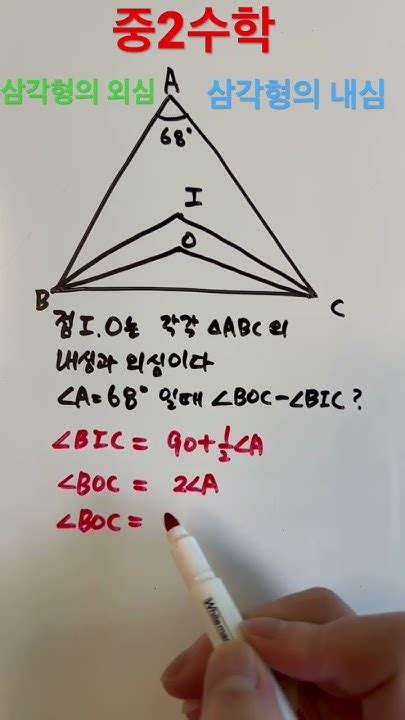 중2수학
삼각형의 외심
삼각형의 내심
A
68°
I
O
B
C
점 I, O는 각각 △ABC의
내심과 외심이다
∠A=68° 일때 ∠BOC-∠BIC ?
∠BIC = 90+½∠A
∠BOC = 2∠A
∠BOC =